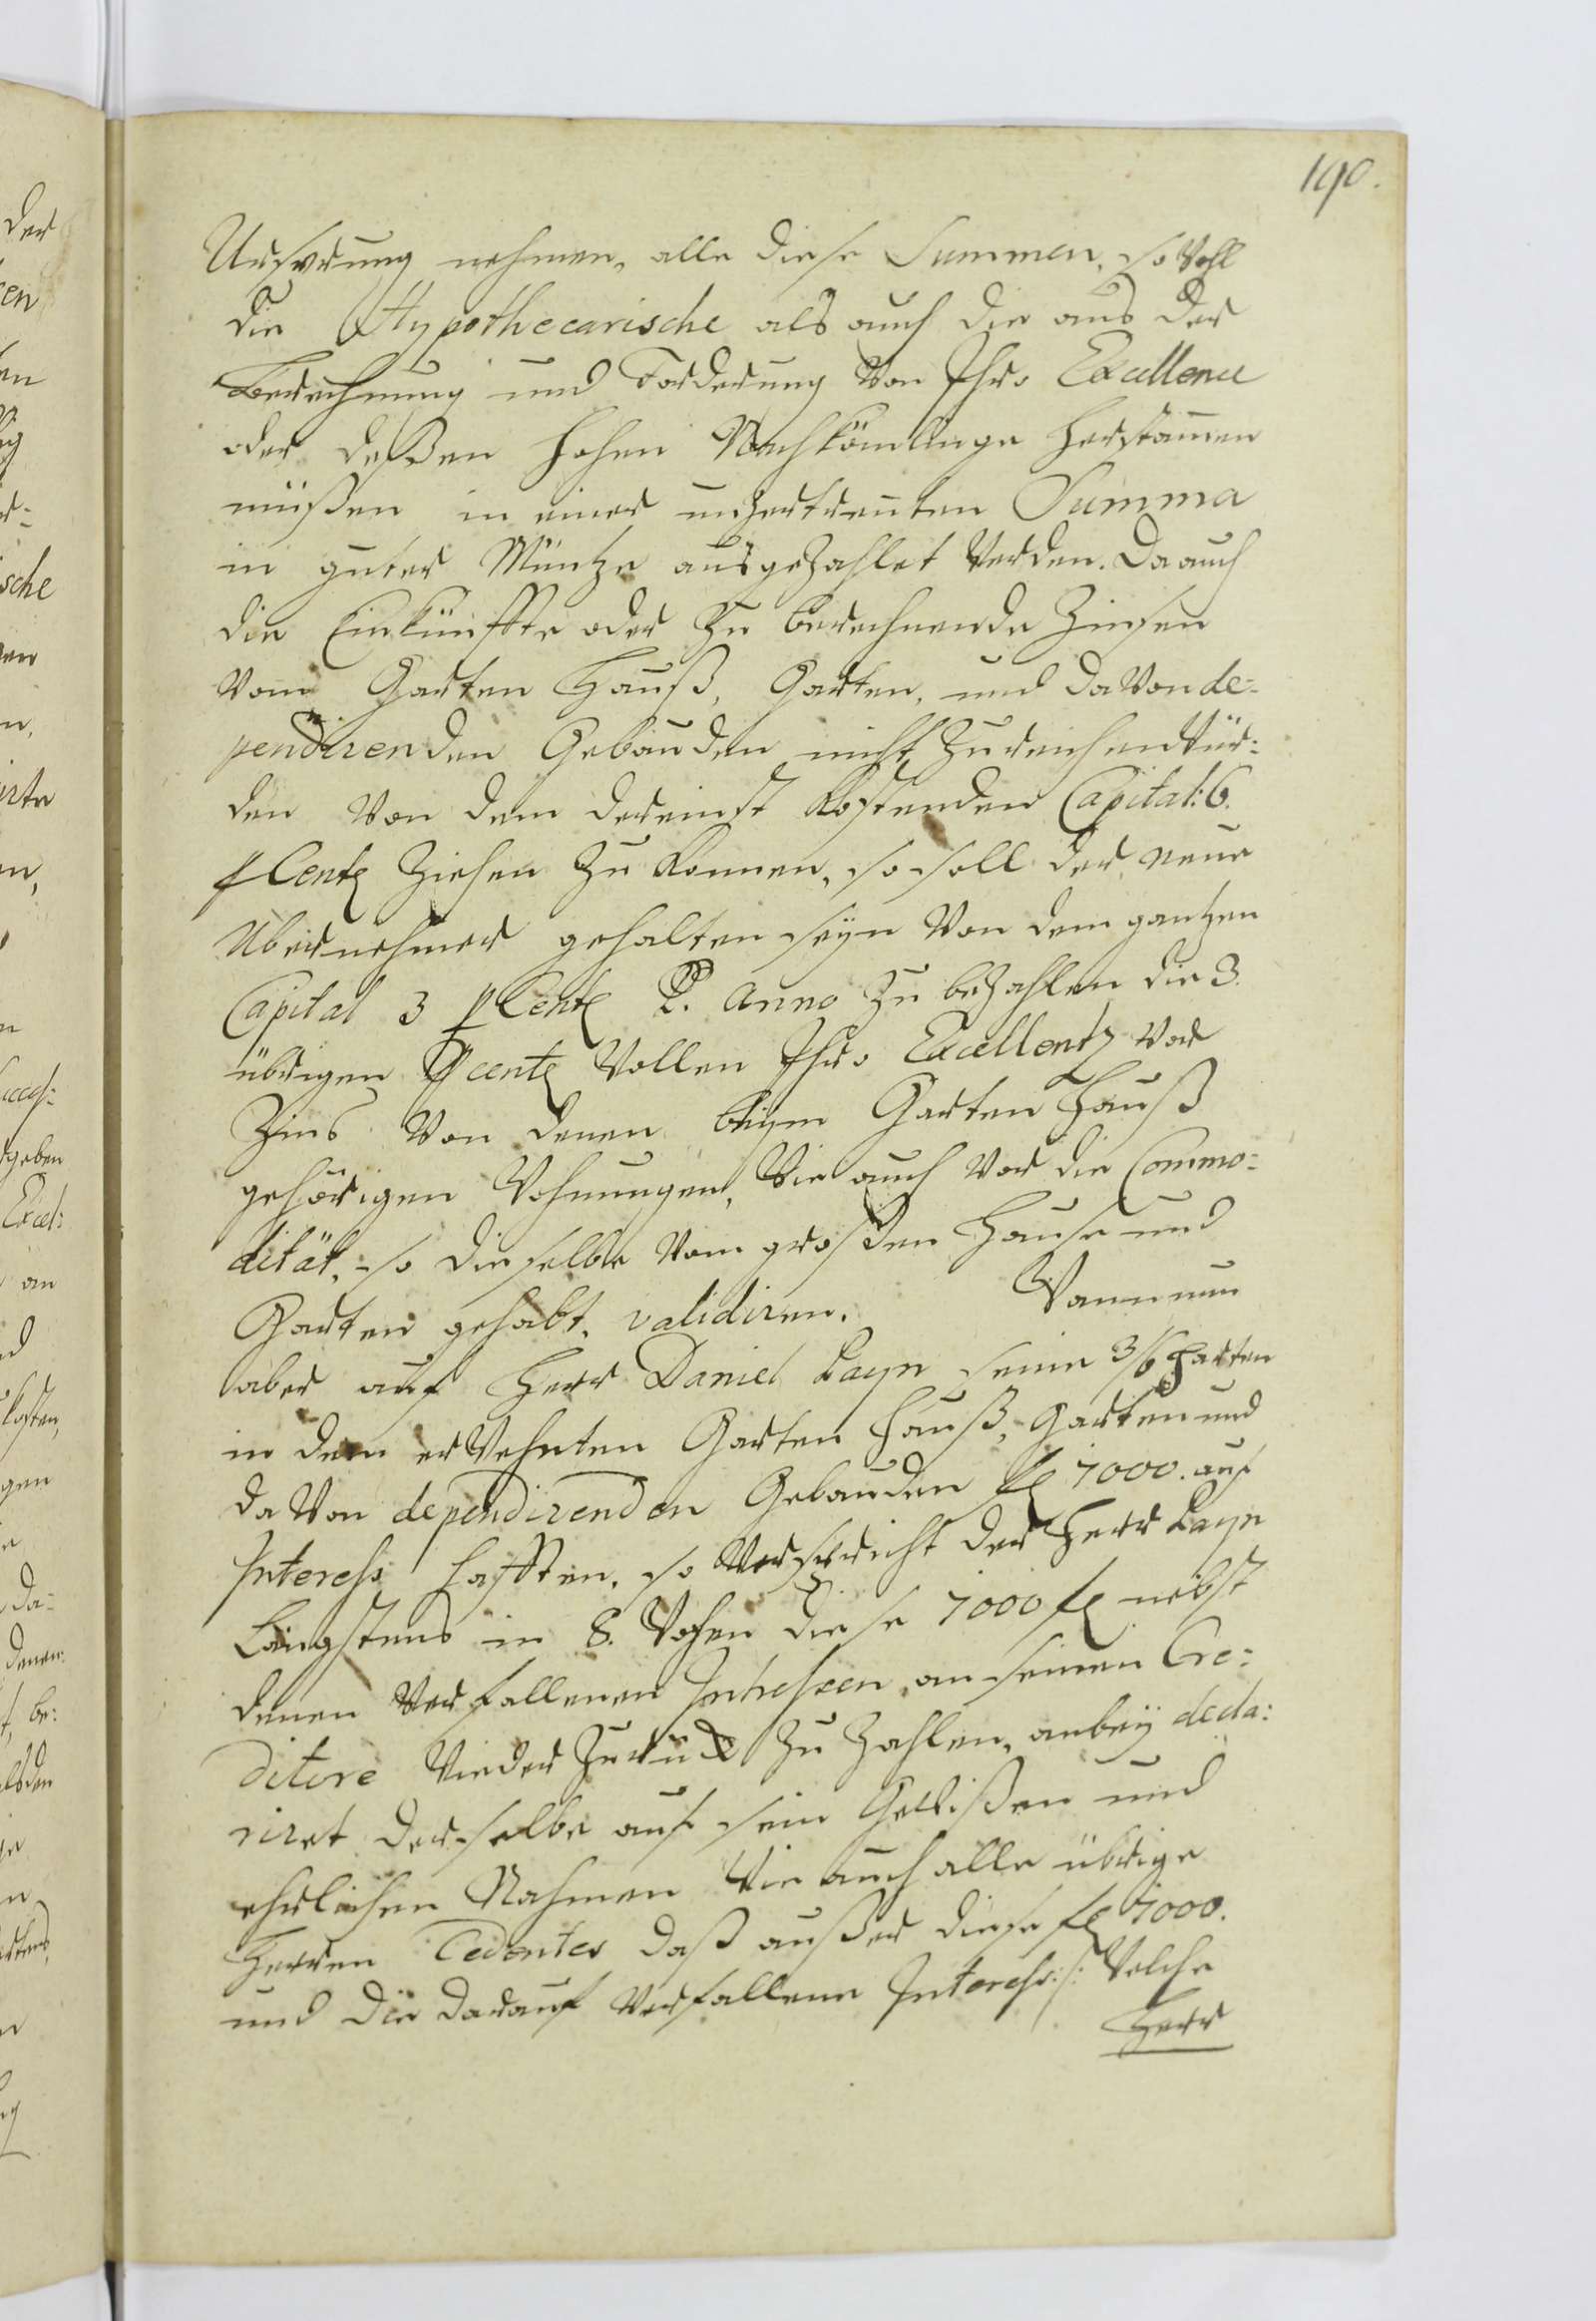 190.
Ursprung nehmen, alle diese Summen, so wohl
die Hypothecarische als auch die aus der
Berechnung und Forderung von Ihro Excellence
oder deßen hohen Nachkömlinge herstam̅en
müßen in einer unzertren̅ten Summa
in guter Müntze ausgezahlet werden. Da auch
die Einkünffte oder zu berechnende Zinsen
vom Garten Hauß, Garten, und davon de=
pendirenden Gebäuden nicht zureichen wür=
den von dem dereinst kostenden Capital: 6.
pCente ziehen zu können, so soll der neue
Übernehmer gehalten seyn von dem gantzen
Capital 3 pCente P. Anno zu bezahlen die 3.
übrigen pcente wollen Ihro Excellentz vor
Zins von denen beym Garten Hauß
gehörigen Wohnungen, wie auch vor die Commo=
dität, so dieselbe vom großen Hause und
Garten gehabt, validiren. Wann nun
aber auf Herr Daniel Layn seine 3/6 Parten
in dem erwehnten Garten Hauß, Garten und
davon dependirenden Gebäuden fl 1000. auf
Interess hafften, so verspricht der Herr Layn
Längstens in 8. Wochen diese 1000 fl nebst
denen verfallenen Intressen, an seinen Cre=
ditore wieder zurück zu zahlen, anbey decla=
riret derselbe auf sein Gewißen und
ehrlichen Nahmen wie auch alle übrige
Herren Cedentes daß außer diese fl 1000.
und die darauf verfallene Interess :/: welche
Herr
der
en
sche
n,
n,
geben
Excel:
an
gen
Da=
denen
be: